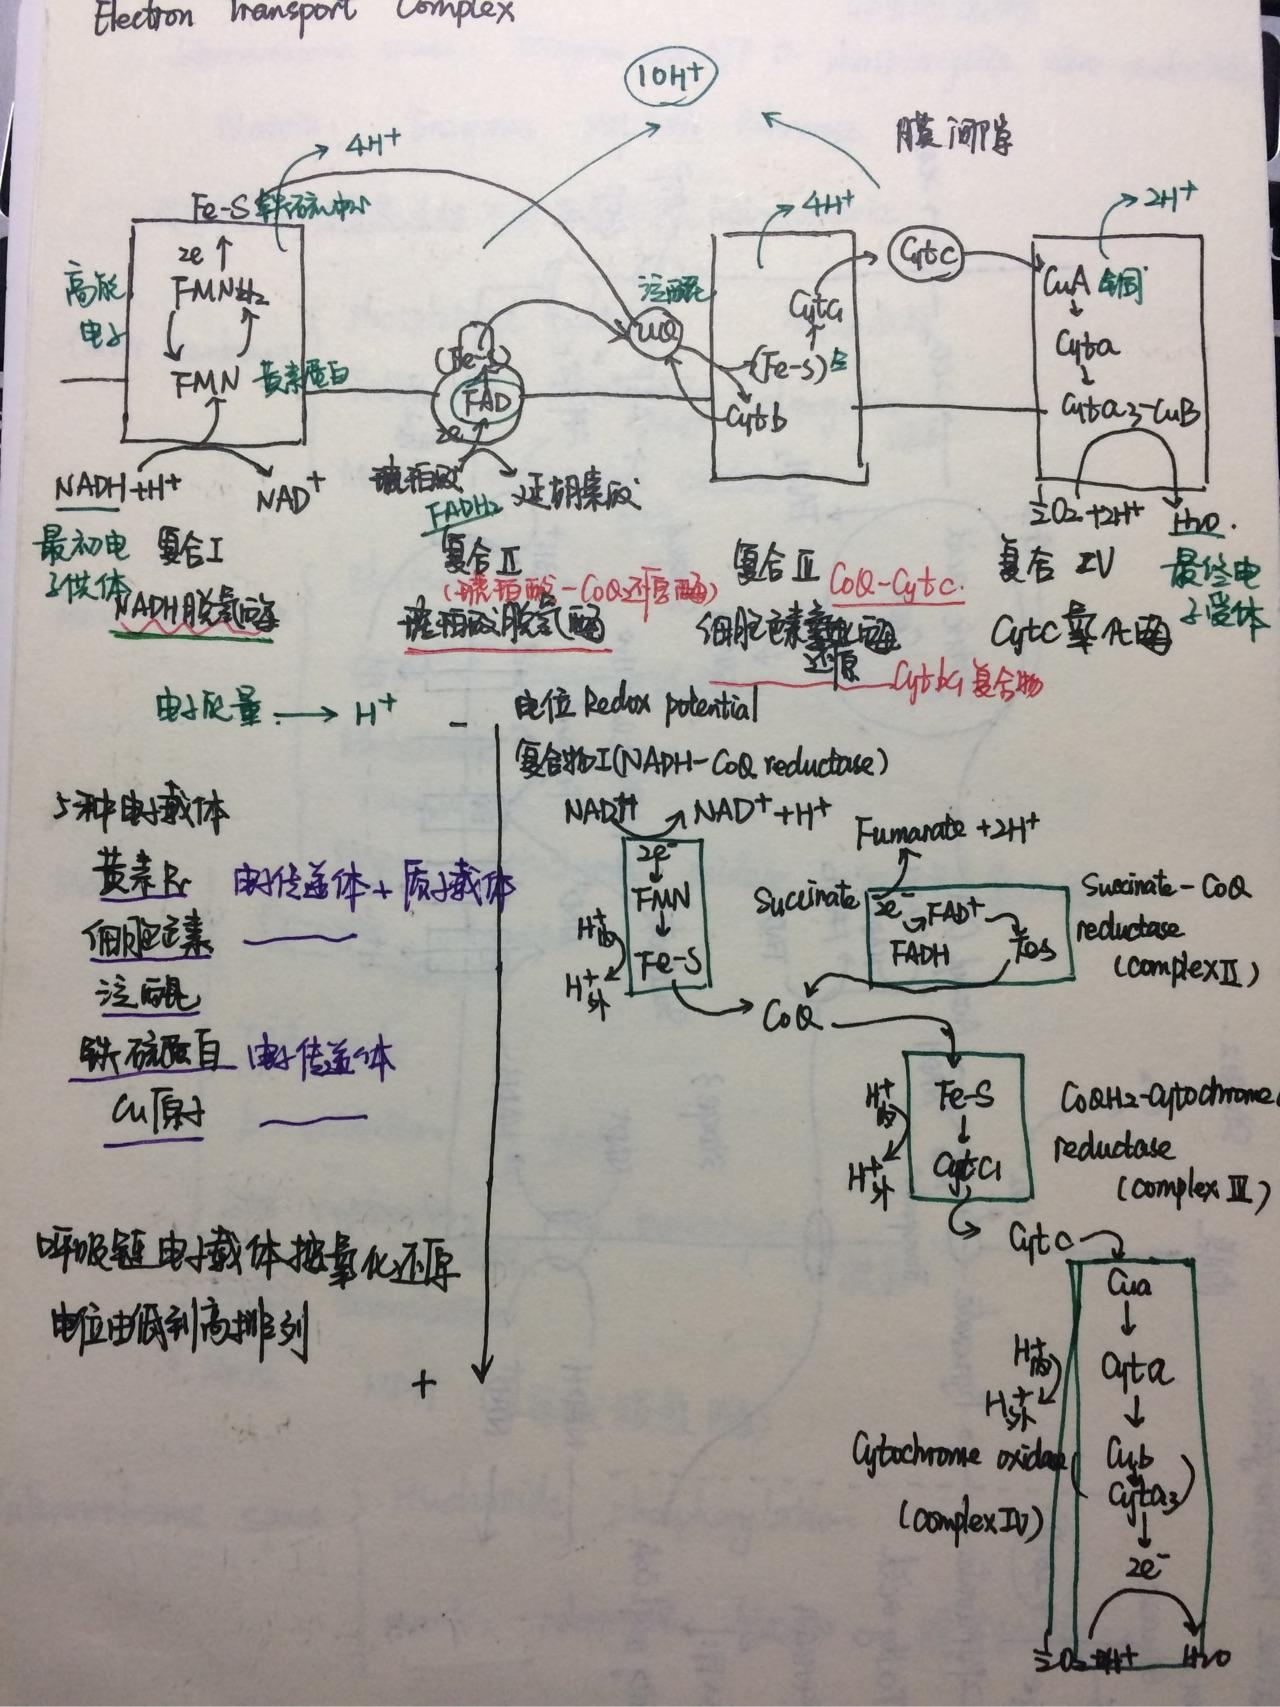 Electron Transport Complex
10H+
膜间隙
4H+
4H+
2H+
Fe-S 铁硫中心
2e
FMNH2
高能电子
FMN 黄素蛋白
泛醌
UQ
(Fe-S)
FAD
2e
Cytc1
(Fe-S)
Cytb
Cytc
CuA 铜
Cyta
Cyta3-CuB
NADH+H+
NAD+
琥珀酸
延胡索酸
FADH2
½O2+2H+
H2O.
最初电子供体
复合I
复合II
复合III
复合IV
最终电子受体
NADH脱氢酶
(琥珀酸-CoQ还原酶)
琥珀酸脱氢酶
CoQ-Cytc.
细胞色素
还原
Cytbc1复合物
CytC氧化酶
电子能量 → H+
-
电位 Redox potential
复合物I(NADH-CoQ reductase)
NADH
NAD+ +H+
2e-
FMN
Fe-S
H+内
H+外
Fumarate +2H+
Succinate
2e-
FAD+
FADH
FeS
Succinate-CoQ
reductase
(complex II)
CoQ
5种电子载体
黄素Pr 电子传递体+质子载体
细胞色素
泛醌
铁硫蛋白 电子传递体
Cu原子
Fe-S
Cytc1
H+内
H+外
CoQH2-Cytochrome
reductase
(complex III)
Cytc
呼吸链电子载体按氧化还原
电位由低到高排列
+
Cua
Cyta
Cub
Cyta3
2e-
H+内
H+外
Cytochrome oxidase
(complex IV)
½O2+2H+
H2O